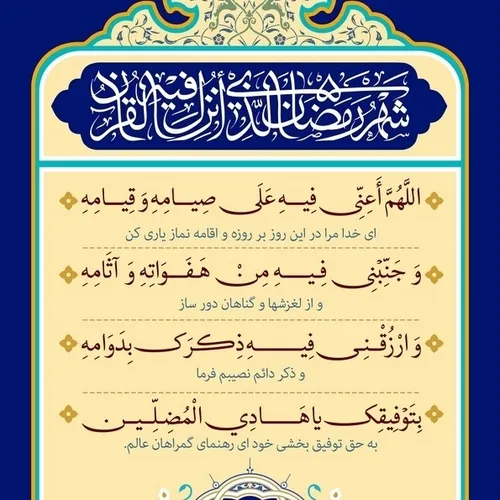 شَهْرُ رَمَضَانَ الَّذِي أُنْزِلَ فِيهِ الْقُرْآن
اللَّهُمَّ أَعِنِّي فِيهِ عَلَى صِيَامِهِ وَ قِيَامِهِ
ای خدا مرا در این روز بر روزه و اقامه نماز یاری کن
وَ جَنِّبْنِي فِيهِ مِنْ هَفَوَاتِهِ وَ آثَامِهِ
و از لغزشها و گناهان دور ساز
وَ ارْزُقْنِي فِيهِ ذِكْرَكَ بِدَوَامِهِ
و ذکر دائم نصیبم فرما
بِتَوْفِيقِكَ يَا هَادِيَ الْمُضِلِّينَ
به حق توفیق بخشی خود ای رهنمای گمراهان عالم.